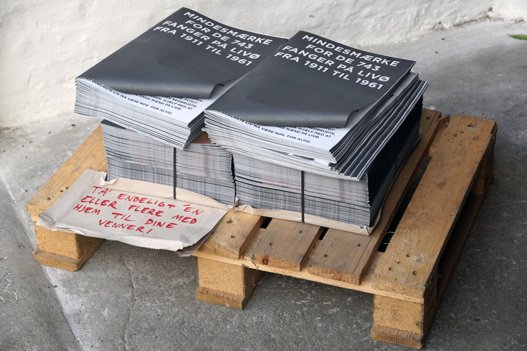 MINDESMÆRKE
FOR DE 743
FANGER PÅ LIVØ
FRA 1911 TIL 1961
MINDESMÆRKE
FOR DE 743
FANGER PÅ LIVØ
FRA 1911 TIL 1961
TA' ENDELIGT EN
ELLER FLERE MED
HJEM TIL DINE
VENNER!